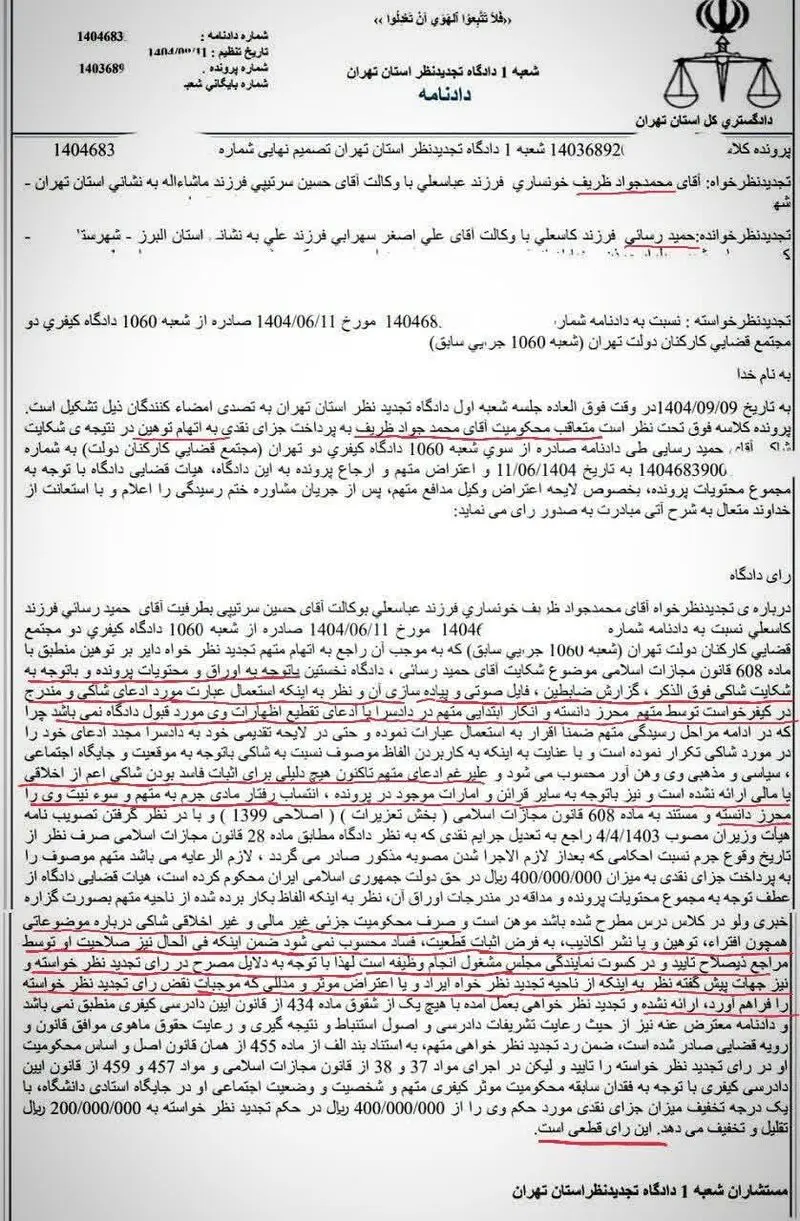 «فَلا تَتَّبِعوُا اَلهَوَي اَنْ تَعْدِلُوا»
شماره دادنامه : 1404683
تاریخ تنظیم :
شماره پرونده : 1403689
شماره بایگانی شعبه
شعبه 1 دادگاه تجدیدنظر استان تهران
دادنامه
دادگستري کل استان تهران
پرونده کلاسه 14036892 شعبه 1 دادگاه تجدیدنظر استان تهران تصمیم نهایی شماره 1404683
تجدیدنظرخواه: آقای محمدجواد ظریف خونساري فرزند عباسعلي با وکالت آقای حسین سرتیپي فرزند ماشاءاله به نشاني استان تهران -
تجدیدنظرخوانده:حمید رسائي فرزند کاسعلي با وکالت آقای علي اصغر سهرابي فرزند علي به نشاني استان البرز - شهرستا -
تجدیدنظرخواسته : نسبت به دادنامه شماره 140468 مورخ 1404/06/11 صادره از شعبه 1060 دادگاه کیفري دو
مجتمع قضایي کارکنان دولت تهران (شعبه 1060 جزایي سابق)
به نام خدا
به تاریخ 1404/09/09در وقت فوق العاده جلسه شعبه اول دادگاه تجدید نظر استان تهران به تصدی امضاء کنندگان ذیل تشکیل است.
پرونده کلاسه فوق تحت نظر است متعاقب محکومیت آقای محمد جواد ظریف به پرداخت جزای نقدی به اتهام توهین در نتیجه ی شکایت
آقای حمید رسایی طی دادنامه صادره از سوی شعبه 1060 دادگاه کیفری دو تهران (مجتمع قضایی کارکنان دولت) به شماره
1404683900 به تاریخ 11/06/1404 و اعتراض متهم و ارجاع پرونده به این دادگاه، هیات قضایی دادگاه با توجه به
مجموع محتویات پرونده، بخصوص لایحه اعتراض وکیل مدافع متهم، پس از جریان مشاوره ختم رسیدگی را اعلام و با استعانت از
خداوند متعال به شرح آتی مبادرت به صدور رای می نماید:
رای دادگاه
درباره ی تجدیدنظرخواه آقای محمدجواد ظریف خونساري فرزند عباسعلي بوکالت آقای حسین سرتیپی بطرفیت آقای حمید رسائي فرزند
کاسعلي نسبت به دادنامه شماره 1404 مورخ 1404/06/11 صادره از شعبه 1060 دادگاه کیفري دو مجتمع
قضایي کارکنان دولت تهران (شعبه 1060 جزایي سابق) که به موجب آن راجع به اتهام متهم تجدید نظر خواه دایر بر توهین منطبق با
ماده 608 قانون مجازات اسلامی موضوع شکایت آقای حمید رسائی ، دادگاه نخستین باتوجه به اوراق و محتویات پرونده و باتوجه به
شکایت شاکی فوق الذکر ، گزارش ضابطین ، فایل صوتی و پیاده سازی آن و نظر به اینکه استعمال عبارت مورد ادعای شاکی و مندرج
در کیفرخواست توسط متهم محرز دانسته و انکار ابتدایی متهم در دادسرا یا ادعای تقطیع اظهارات وی مورد قبول دادگاه نمی باشد چرا
که در ادامه مراحل رسیدگی متهم ضمنا اقرار به استعمال عبارات نموده و حتی در لایحه تقدیمی خود به دادسرا مجدد ادعای خود را
در مورد شاکی تکرار نموده است و با عنایت به اینکه به کاربردن الفاظ موصوف نسبت به شاکی باتوجه به موقعیت و جایگاه اجتماعی
، سیاسی و مذهبی وی وهن آور محسوب می شود و علیرغم ادعای متهم تاکنون هیچ دلیلی برای اثبات فاسد بودن شاکی اعم از اخلاقی
یا مالی ارائه نشده است و نیز باتوجه به سایر قرائن و امارات موجود در پرونده ، انتساب رفتار مادی جرم به متهم و سوء نیت وی را
محرز دانسته و مستند به ماده 608 قانون مجازات اسلامی ( بخش تعزیرات ) ( اصلاحی 1399 ) و با در نظر گرفتن تصویب نامه
هیأت وزیران مصوب 4/4/1403 راجع به تعدیل جرایم نقدی که به نظر دادگاه مطابق ماده 28 قانون مجازات اسلامی صرف نظر از
تاریخ وقوع جرم نسبت احکامی که بعداز لازم الاجرا شدن مصوبه مذکور صادر می گردد ، لازم الرعایه می باشد متهم موصوف را
به پرداخت جزای نقدی به میزان 400/000/000 ریال در حق دولت جمهوری اسلامی ایران محکوم کرده است، هیات قضایی دادگاه از
عطف توجه به مجموع محتویات پرونده و مداقه در مندرجات اوراق آن، نظر به اینکه الفاظ بکار برده شده از ناحیه متهم بصورت گزاره
خبری ولو در کلاس درس مطرح شده باشد موهن است و صرف محکومیت جزئی غیر مالی و غیر اخلاقی شاکی درباره موضوعاتی
همچون افتراء، توهین و یا نشر اکاذیب، به فرض اثبات قطعیت، فساد محسوب نمی شود ضمن اینکه فی الحال نیز صلاحیت او توسط
مراجع ذیصلاح تایید و در کسوت نمایندگی مجلس مشغول انجام وظیفه است لهذا با توجه به دلایل مصرح در رای تجدید نظر خواسته و
نیز جهات پیش گفته نظر به اینکه از ناحیه تجدید نظر خواه ایراد و یا اعتراض موثر و مدللی که موجبات نقض رای تجدید نظر خواسته
را فراهم آورد، ارائه نشده و تجدید نظر خواهی بعمل آمده با هیچ یک از شقوق ماده 434 از قانون آیین دادرسی کیفری منطبق نمی باشد
و دادنامه معترض عنه نیز از حیث رعایت تشریفات دادرسی و اصول استنباط و نتیجه گیری و رعایت حقوق ماهوی موافق قانون و
رویه قضایی صادر شده است، ضمن رد تجدید نظر خواهی متهم، به استناد بند الف از ماده 455 از همان قانون اصل و اساس محکومیت
او در رای تجدید نظر خواسته را تایید و لیکن در اجرای مواد 37 و 38 از قانون مجازات اسلامی و مواد 457 و 459 از قانون آیین
دادرسی کیفری با توجه به فقدان سابقه محکومیت موثر کیفری متهم و شخصیت و وضعیت اجتماعی او در جایگاه استادی دانشگاه، با
یک درجه تخفیف میزان جزای نقدی مورد حکم وی را از 400/000/000 ریال در حکم تجدید نظر خواسته به 200/000/000 ریال
تقلیل و تخفیف می دهد. این رای قطعی است.
مستشاران شعبه 1 دادگاه تجدیدنظراستان تهران